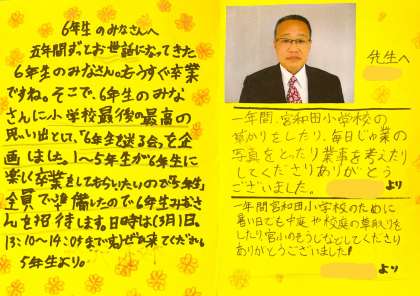 6年生のみなさんへ
五年間ずっとお世話になってきた
6年生のみなさん。もうすぐ卒業
ですね。そこで、6年生のみな
さんに小学校最後の最高の
思い出として、「6年生を送る会」を企
画しました。1〜5年生が6年生に
楽しく卒業をしてもらいたいので「5年生」
全員で準備したので6年生みなさ
んを招待します。日時は(3月1日、
13:10〜14:05までです)ぜひ来てください。
5年生より。
先生へ
一年間、宮和田小学校の
ずかりをしたり、毎日じゅ業の
写真をとったり業事を考えたり
してくださりありがとう
ございました。
より
一年間宮和田小学校のために
暑い日でも中庭や校庭の草取りを
したり宮小のそうじなどしてくださり
ありがとうございました!
より